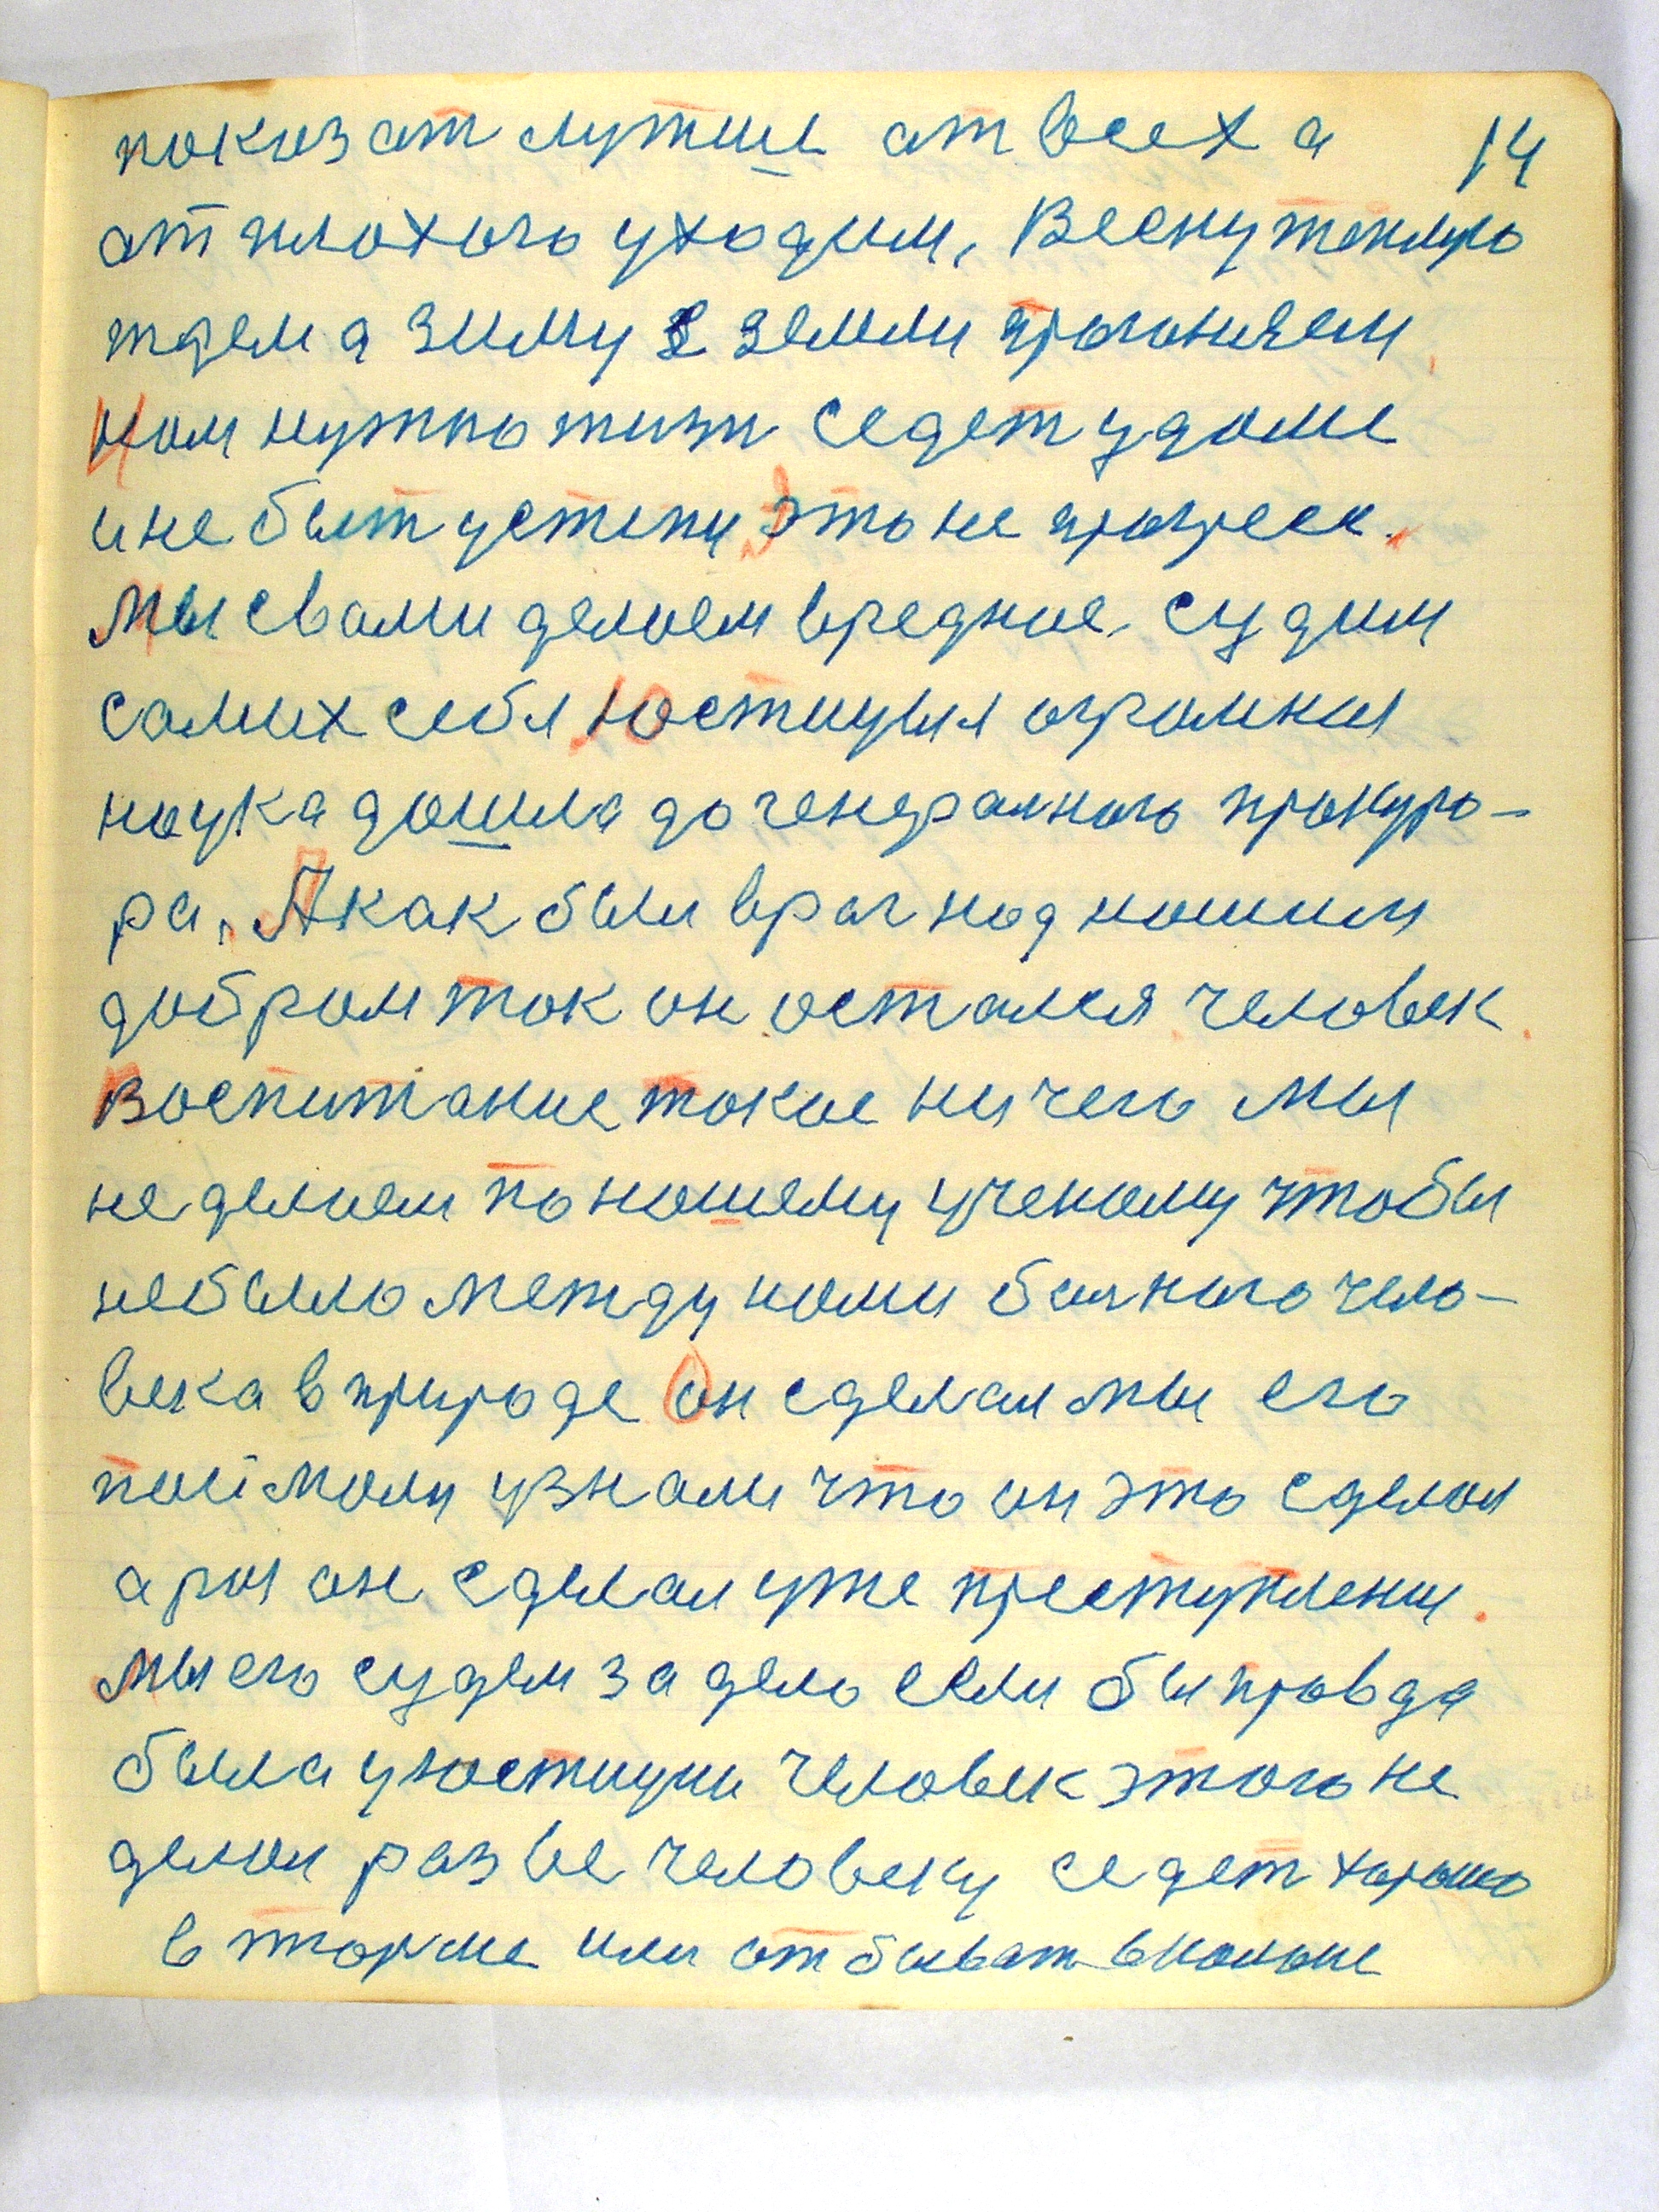 показат лутше от всех а 14
от плохого уходим, Весну теплую
ждем а зиму с земли прогоняем
Нам нужно жизн седет у доме
и не быт у степи, Это не прогресс.
Мы свами делаем вредное, судим
самих себя. Юстицыя огромная
наука дошла до генералного прокуро-
ра, А как был враг над нашим
добром так он остался человек.
Воспитание такое ничего мы
не делаем по нашему ученому чтобы
не было между нами болного чело-
века в природе Он сделал мы его
поймали узнали что он это сделал
а раз он сделал уже преступлени.
Мы его судем за дело если бы правда
была у юстицыи человек этого не
делал разве человеку седет хорошо
в тюрме или отбыват в колоне